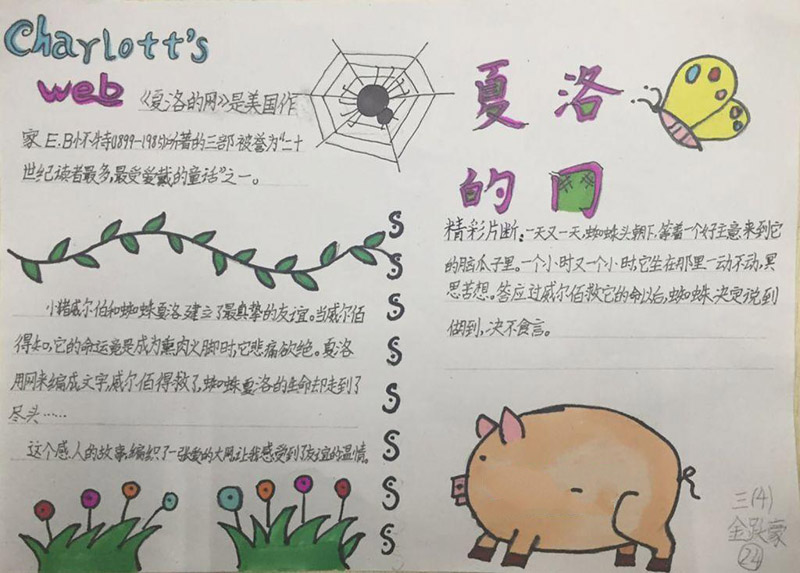 Charlott's
web
《夏洛的网》是美国作
家E.B怀特(1899-1985)所著的三部被誉为“二十
世纪读者最多,最受爱戴的童话”之一。
小猪威尔伯和蜘蛛夏洛建立了最真挚的友谊。当威尔佰
得知,它的命运竟是成为熏肉火脚时,它悲痛欲绝。夏洛
用网来编成文字,威尔佰得救了,蜘蛛夏洛的生命却走到了
尽头……
这个感人的故事,编织了一张爱的大网,让我感受到了友谊的温情。
S
S
S
S
S
S
S
S
S
夏洛
的网
精彩片断:一天又一天,蜘蛛头朝下,等着一个好主意来到它
的脑瓜子里。一个小时又一个小时,它坐在那里一动不动,冥
思苦想。答应过威尔佰救它的命以后,蜘蛛决定说到
做到,决不食言。
三(4)
金 蒙
24